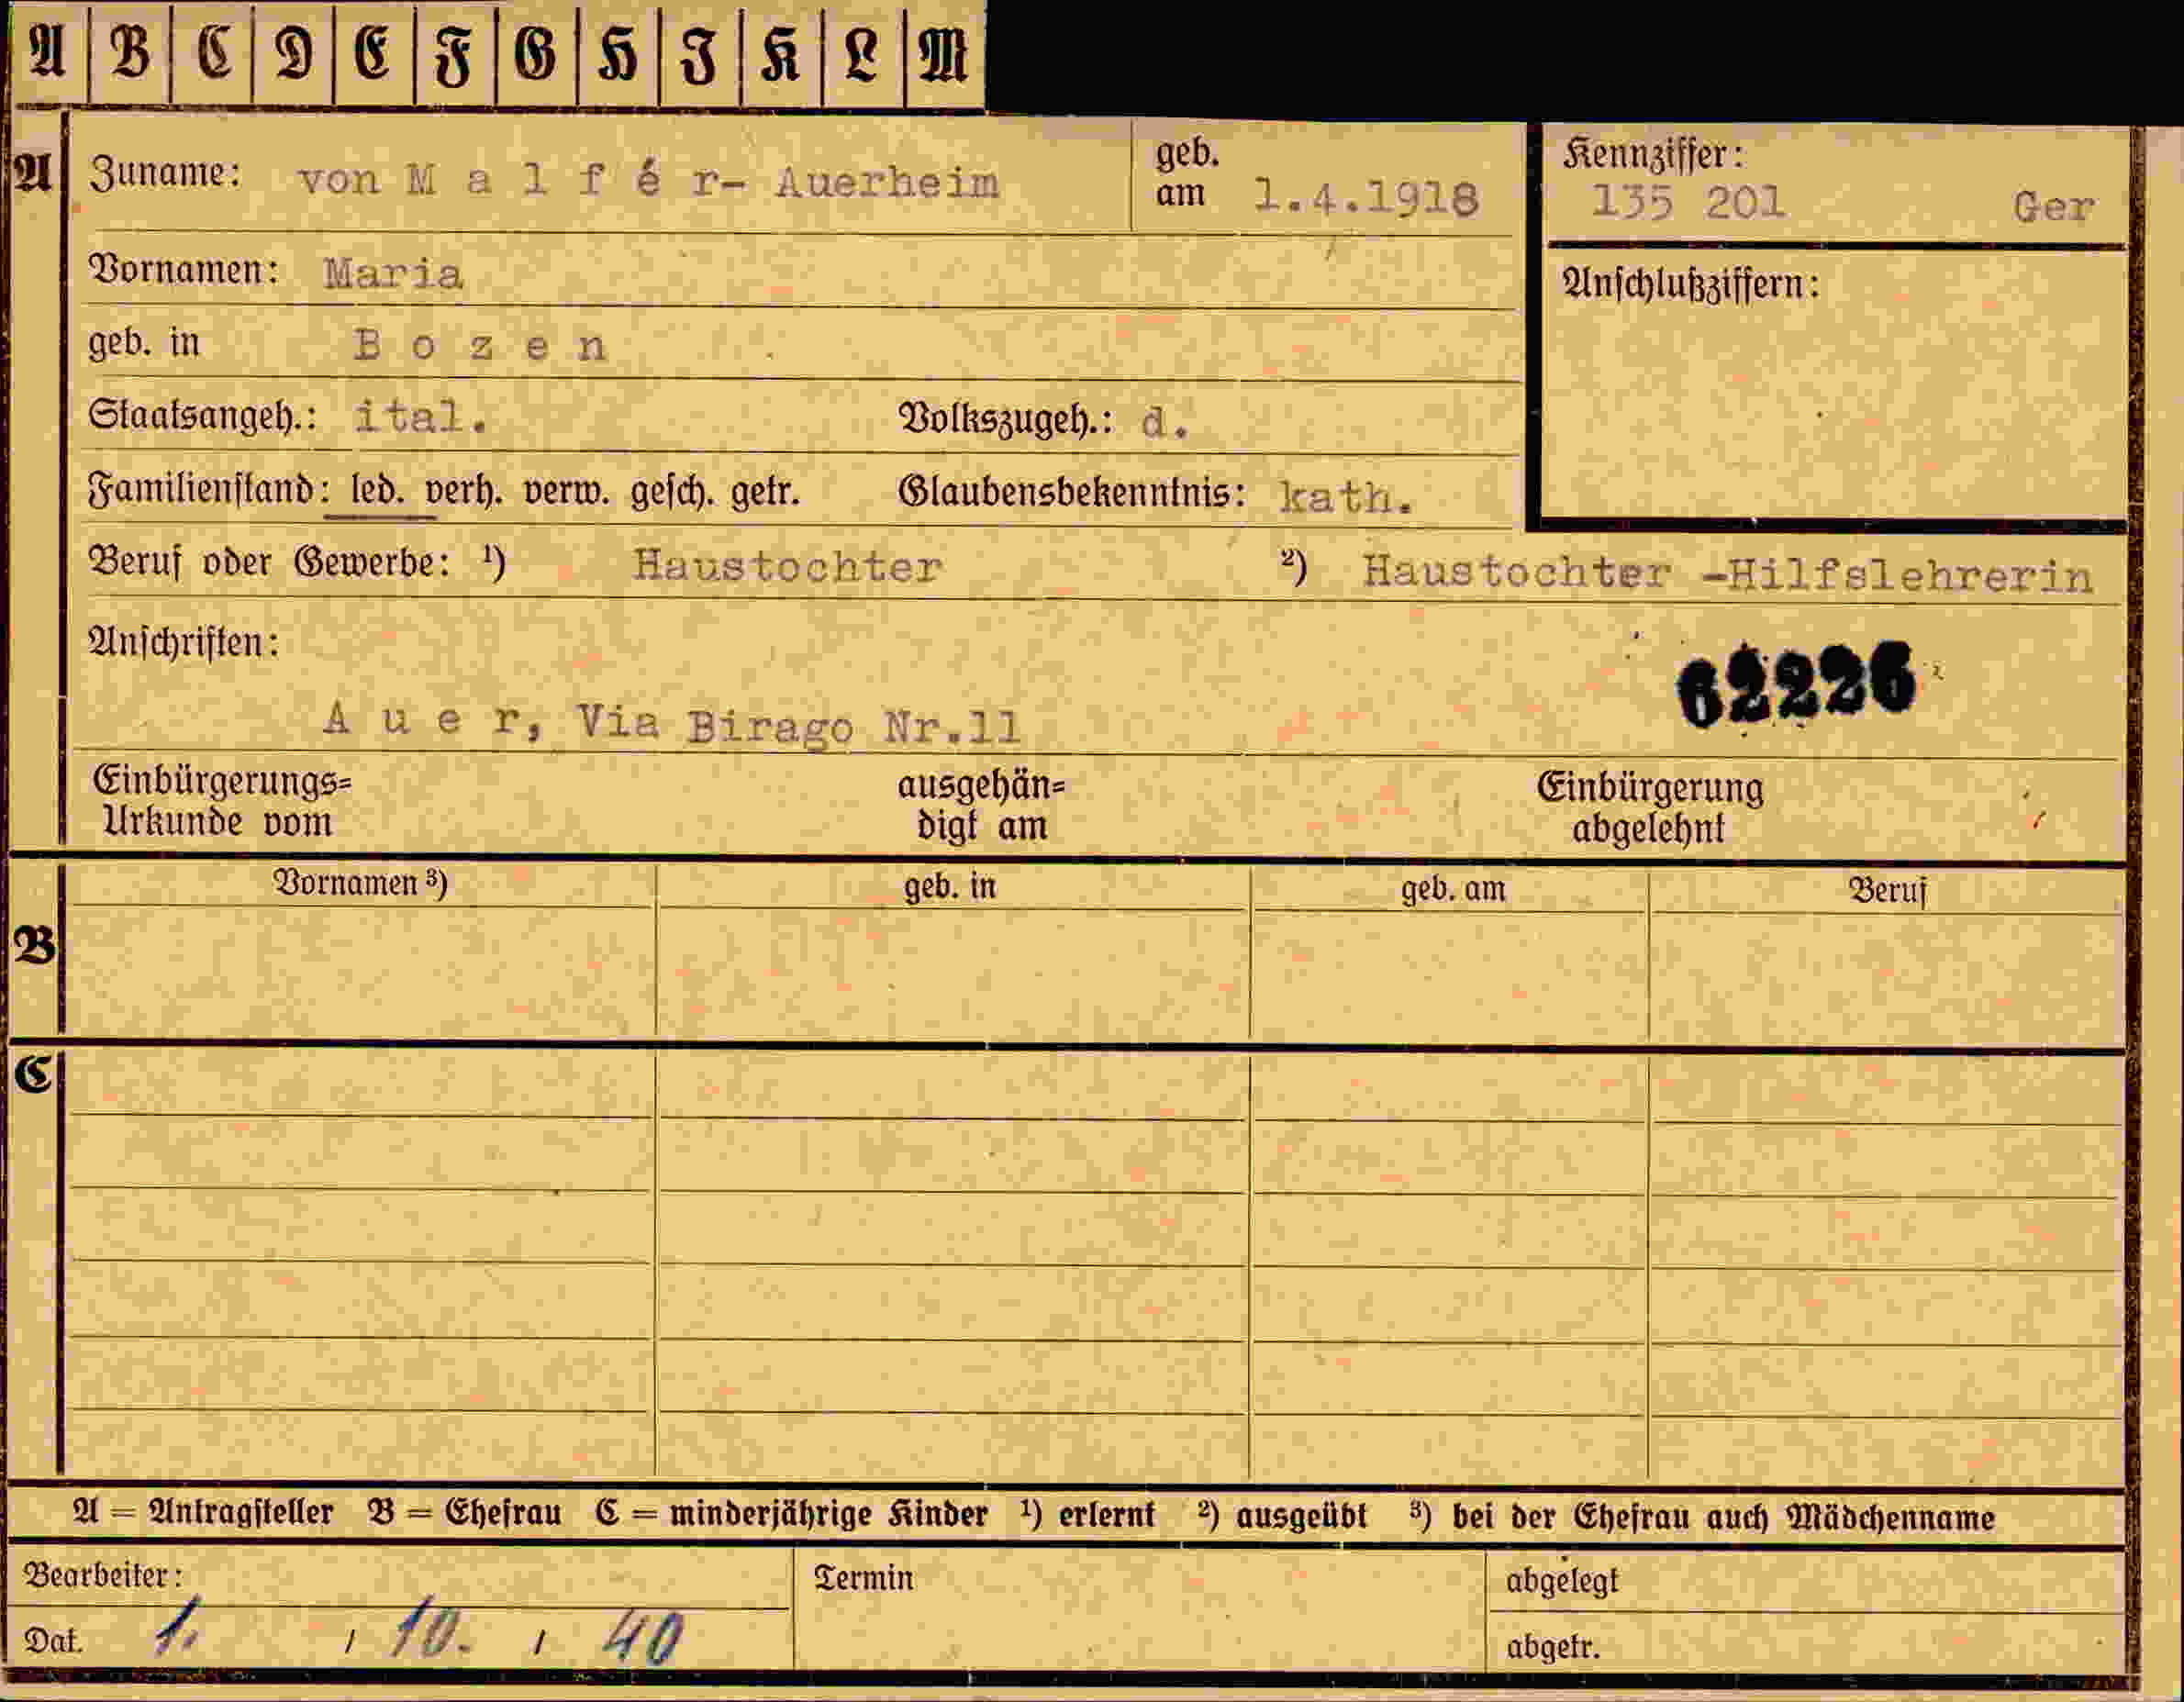 A B C D E F G H I K L M
A Zuname: von M a l f é r- Auerheim geb. am 1.4.1918 Kennziffer: 135 201 Ger
Vornamen: Maria Anschlußziffern:
geb. in B o z e n
Staatsangeh.: ital. Volkszugeh.: d.
Familienstand: led. verh. verw. gesch. getr. Glaubensbekenntnis: kath.
Beruf oder Gewerbe: ¹) Haustochter ²) Haustochter -Hilfslehrerin
Anschriften:
62226
A u e r, Via Birago Nr.11
Einbürgerungs= ausgehän= Einbürgerung
Urkunde vom digt am abgelehnt
Vornamen ³) geb. in geb. am Beruf
B
C
A = Antragsteller B = Ehefrau C = minderjährige Kinder ¹) erlernt ²) ausgeübt ³) bei der Ehefrau auch Mädchenname
Bearbeiter: Termin abgelegt
Dat. 1. / 10. / 40 abgetr.